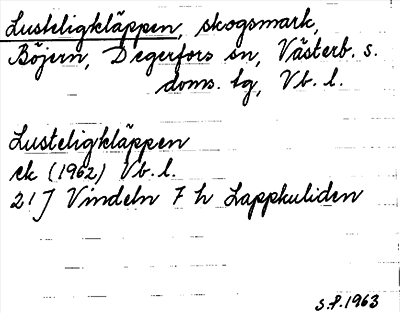 Lusteligkläppen, skogsmark,
Böjern, Degerfors sn, Västerb. s.
doms. tg, Vb. l.
Lusteligkläppen
ek (1962) Vb. l.
21 J Vindeln 7 h Lappkuliden
S.P. 1963